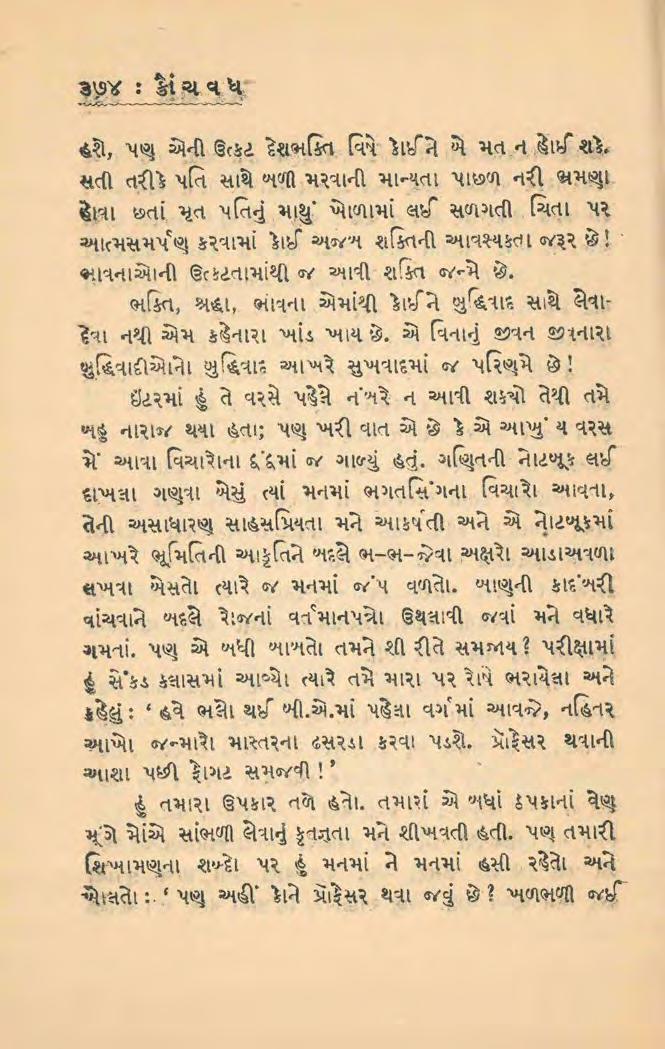 ૩૭૪ : ક્રૌંચવધ
હશે, પણ એની ઉત્કટ દેશભક્તિ વિષે કોઈને બે મત ન હોઈ શકે.
સતી તરીકે પતિ સાથે બળી મરવાની માન્યતા પાછળ નરી ભ્રમણા
હોવા છતાં મૃત પતિનું માથું ખોળામાં લઈ સળગતી ચિતા પર
આત્મસમર્પણ કરવામાં કોઈ અજબ શક્તિની આવશ્યકતા જરૂર છે!
ભાવનાઓની ઉત્કટતામાંથી જ આવી શક્તિ જન્મે છે.
ભક્તિ, શ્રદ્ધા, ભાવના એમાંથી કોઈને બુદ્ધિવાદ સાથે લેવા-
દેવા નથી એમ કહેનારા ખાંડ ખાય છે. એ વિનાનું જીવન જીવનારા
બુદ્ધિવાદીઓનો બુદ્ધિવાદ આખરે સુખવાદમાં જ પરિણમે છે!
ઇંટરમાં હું તે વરસે પહેલે નંબરે ન આવી શક્યો તેથી તમે
બહુ નારાજ થયા હતા; પણ ખરી વાત એ છે કે એ આખું ય વરસ
મેં આવા વિચારોના દ્વંદ્વમાં જ ગાળ્યું હતું. ગણિતની નોટબૂક લઈ
દાખલા ગણવા બેસું ત્યાં મનમાં ભગતસિંગના વિચારો આવતા,
તેની અસાધારણ સાહસપ્રિયતા મને આકર્ષતી અને એ નોટબૂકમાં
આખરે ભૂમિતિની આકૃતિને બદલે ભ-ભ-જેવા અક્ષરો આડાઅવળા
લખવા બેસતો ત્યારે જ મનમાં જંપ વળતો. બાણની કાદંબરી
વાંચવાને બદલે રોજનાં વર્તમાનપત્રો ઉથલાવી જવાં મને વધારે
ગમતાં. પણ એ બધી બાબતો તમને શી રીતે સમજાય? પરીક્ષામાં
હું સેંકડ કલાસમાં આવ્યો ત્યારે તમે મારા પર રોષે ભરાયેલા અને
કહેલું: ‘હવે ભલો થઈ બી.એ.માં પહેલા વર્ગમાં આવજે, નહિતર
આખો જન્મારો માસ્તરના ઢસરડા કરવા પડશે. પ્રોફેસર થવાની
આશા પછી ફોગટ સમજવી!’
હું તમારા ઉપકાર તળે હતો. તમારાં એ બધાં ઠપકાનાં વેણ
મૂંગે મોંએ સાંભળી લેવાનું કૃતજ્ઞતા મને શીખવતી હતી. પણ તમારી
શિખામણના શબ્દો પર હું મનમાં ને મનમાં હસી રહેતો અને
બોલતો: ‘પણ અહીં કોને પ્રોફેસર થવા જવું છે? ખળભળી જઈ